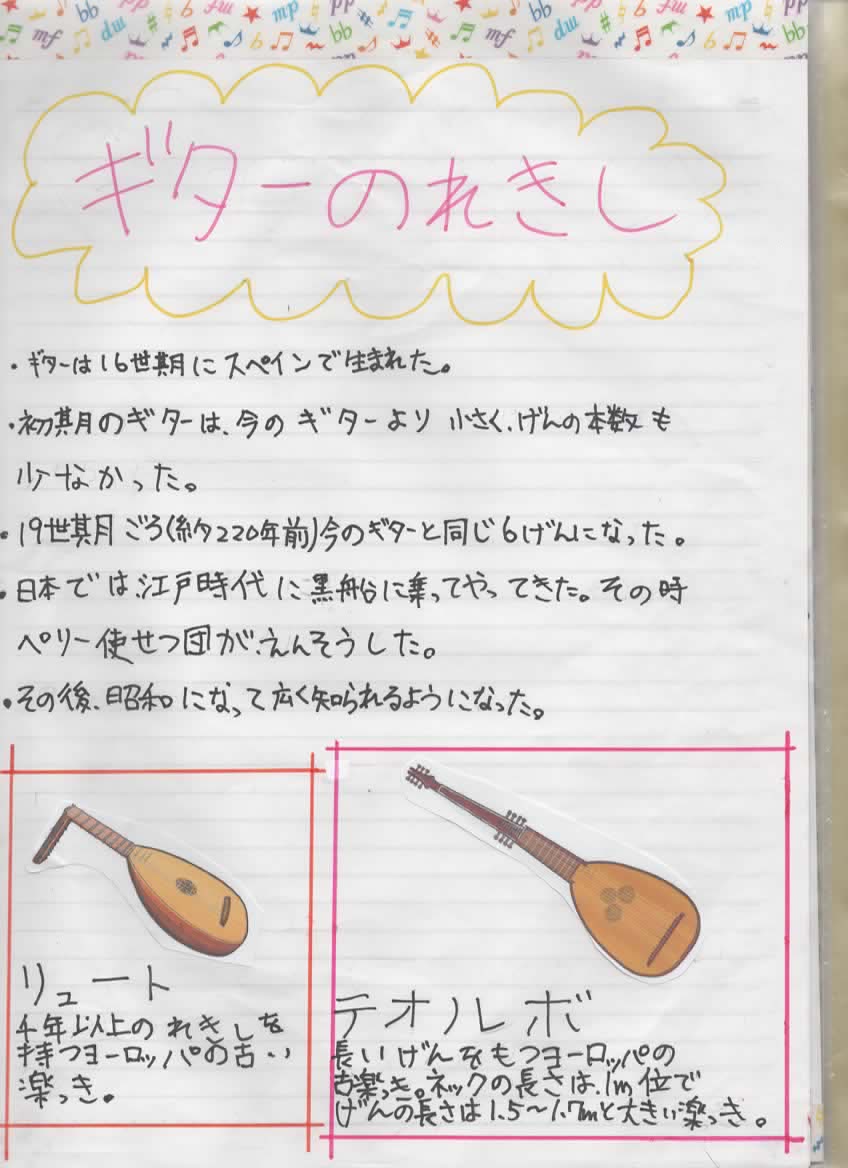 bb mp pp mf dm mf bb mp pp
mf dm bb mf dm bb
ギターのれきし
・ギターは16世期にスペインで生まれた。
・初期のギターは、今のギターより小さく、げんの本数も
少なかった。
・19世期ごろ(約220年前)今のギターと同じ6げんになった。
・日本では、江戸時代に黒船に乗ってやってきた。その時
ペリー使せつ団が、えんそうした。
・その後、昭和になって広く知られるようになった。
リュート
千年以上のれきしを
持つヨーロッパの古い
楽っき。
テオルボ
長いげんをもつヨーロッパの
古楽っき。ネックの長さは、1m位で
げんの長さは1.5～1.7mと大きい楽っき。